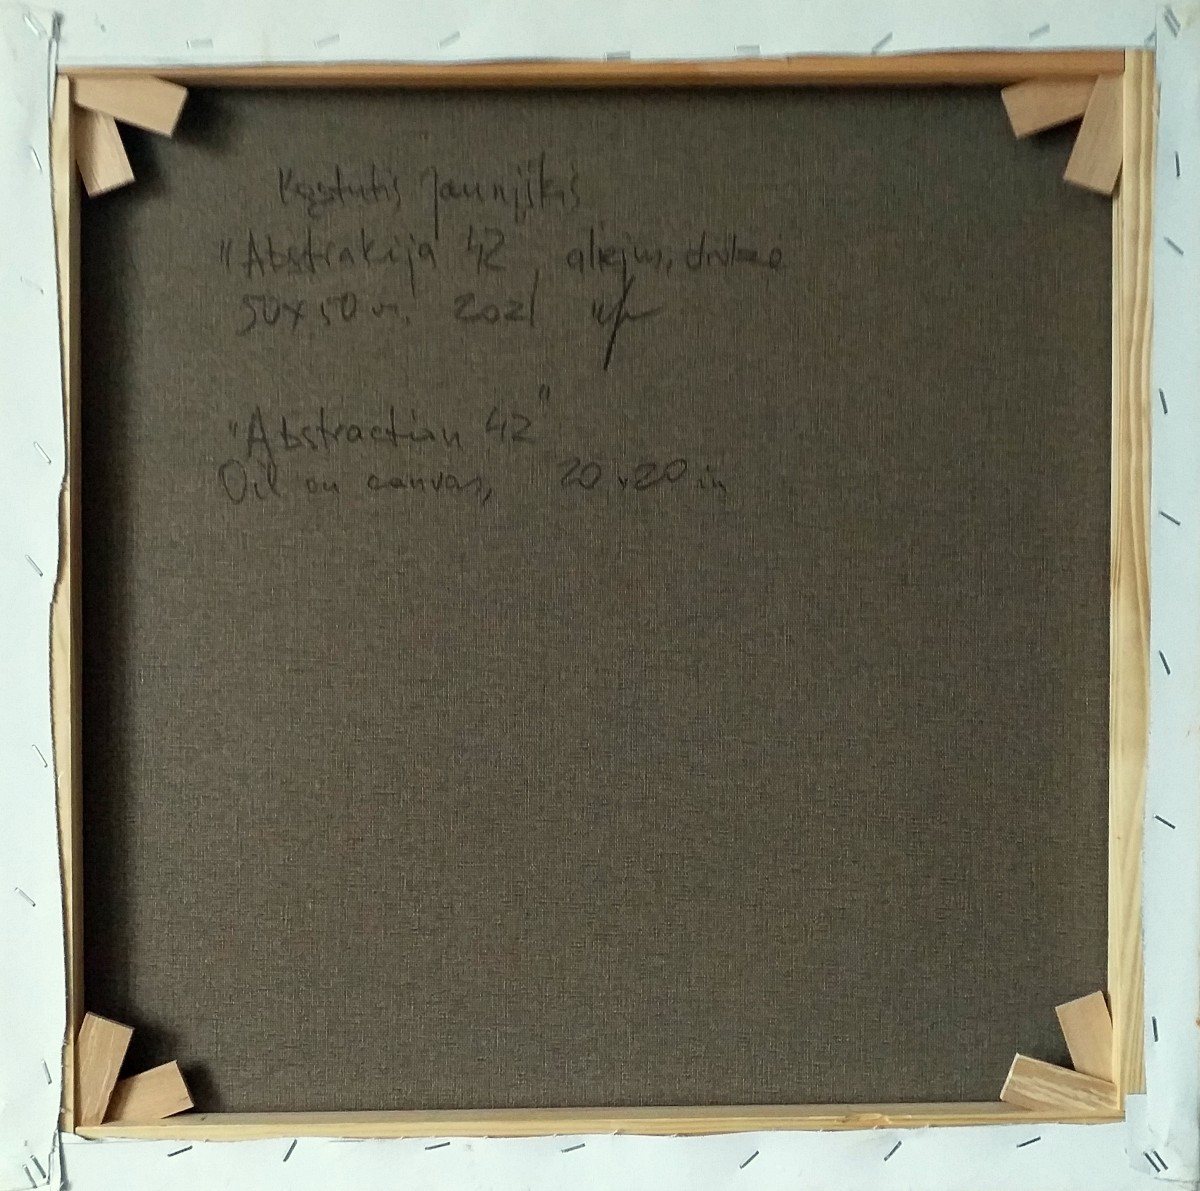 Kęstutis Jauniškis
"Abstrakcija 42, aliejus, drobė
50x50 cm, 2021
"Abstraction 42"
Oil on canvas, 20x20 in